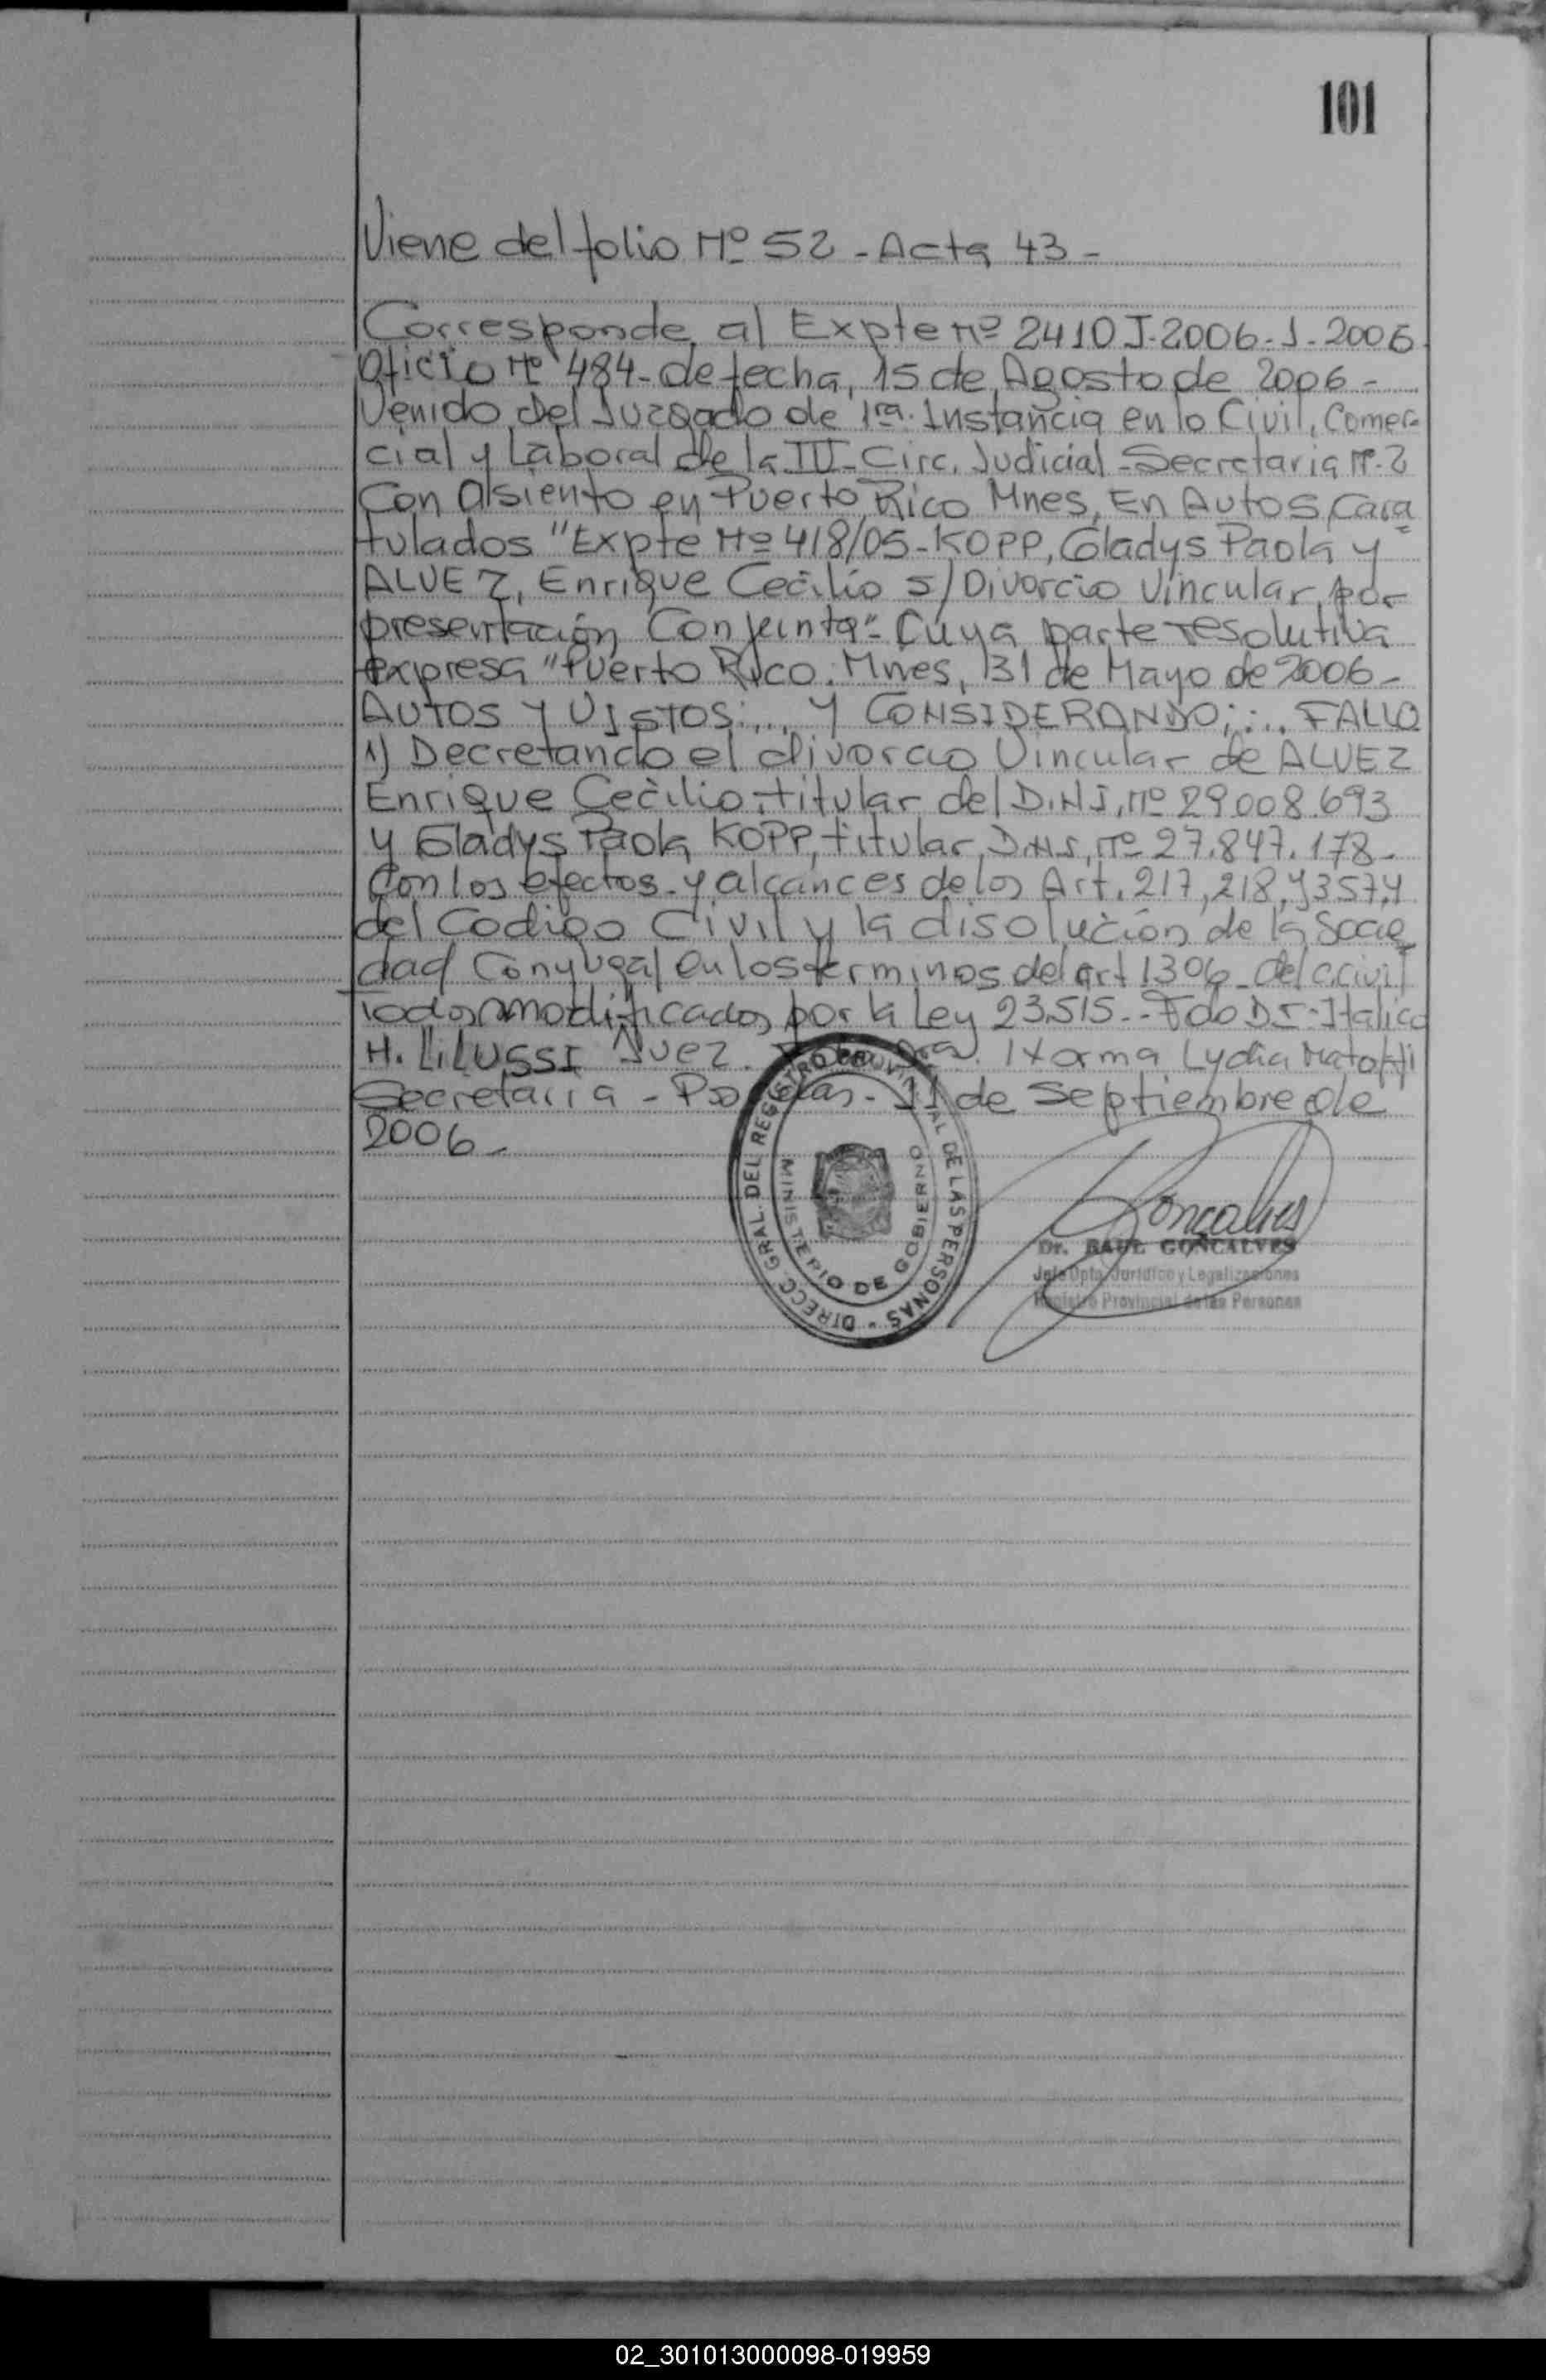 101
Viene del folio Nº 52 - Acta 43 -
Corresponde al Expte nº 2410 J-2006-J-2006
Oficio Nº 484- de fecha, 15 de Agosto de 2006 -
Venido del Juzgado de 1ra. Instancia en lo Civil, Comer=
cial y Laboral de la Circ. Judicial - Secretaria Nº-2
Con asiento en Puerto Rico Mnes, En Autos Cara=
tulados "Expte Nº 418/05-KOPP, Gladys Paola y
ALVEZ, Enrique Cecilio s/Divorcio Vincular, por
presentación Conjunta"- Cuya parte resolutiva
expresa "Puerto Rico. Mnes, 31 de Mayo de 2006-
AUTOS Y VISTOS:... Y CONSIDERANDO;:... FALLO
1) Decretando el divorcio Vincular de ALVEZ
Enrique Cecilio, titular del D.N.I, nº 29.008.693
y Gladys Paola KOPP, titular, D.N.I, nº 27.847.178-
Con los efectos y alcances de los Art. 217, 218, y 3574
del Codigo Civil y la disolución de la Socie
dad Conyugal en los terminos del art 1306- del C.Civil
Todos modificados por la Ley 23.515.- Fdo Dr- Italico
H. Juez. Dra. Norma Lydia
Secretaria - Posadas- 11 de Septiembre de
2006 -
DIRECC GRAL. DEL REGISTRO PROVINCIAL DE LAS PERSONAS -
MINISTERIO DE GOBIERNO
Goncalves
Dr. RAUL GONCALVES
Jefe Dpto. Jurídico y Legalizaciones
Registro Provincial de las Personas
02_301013000098-019959